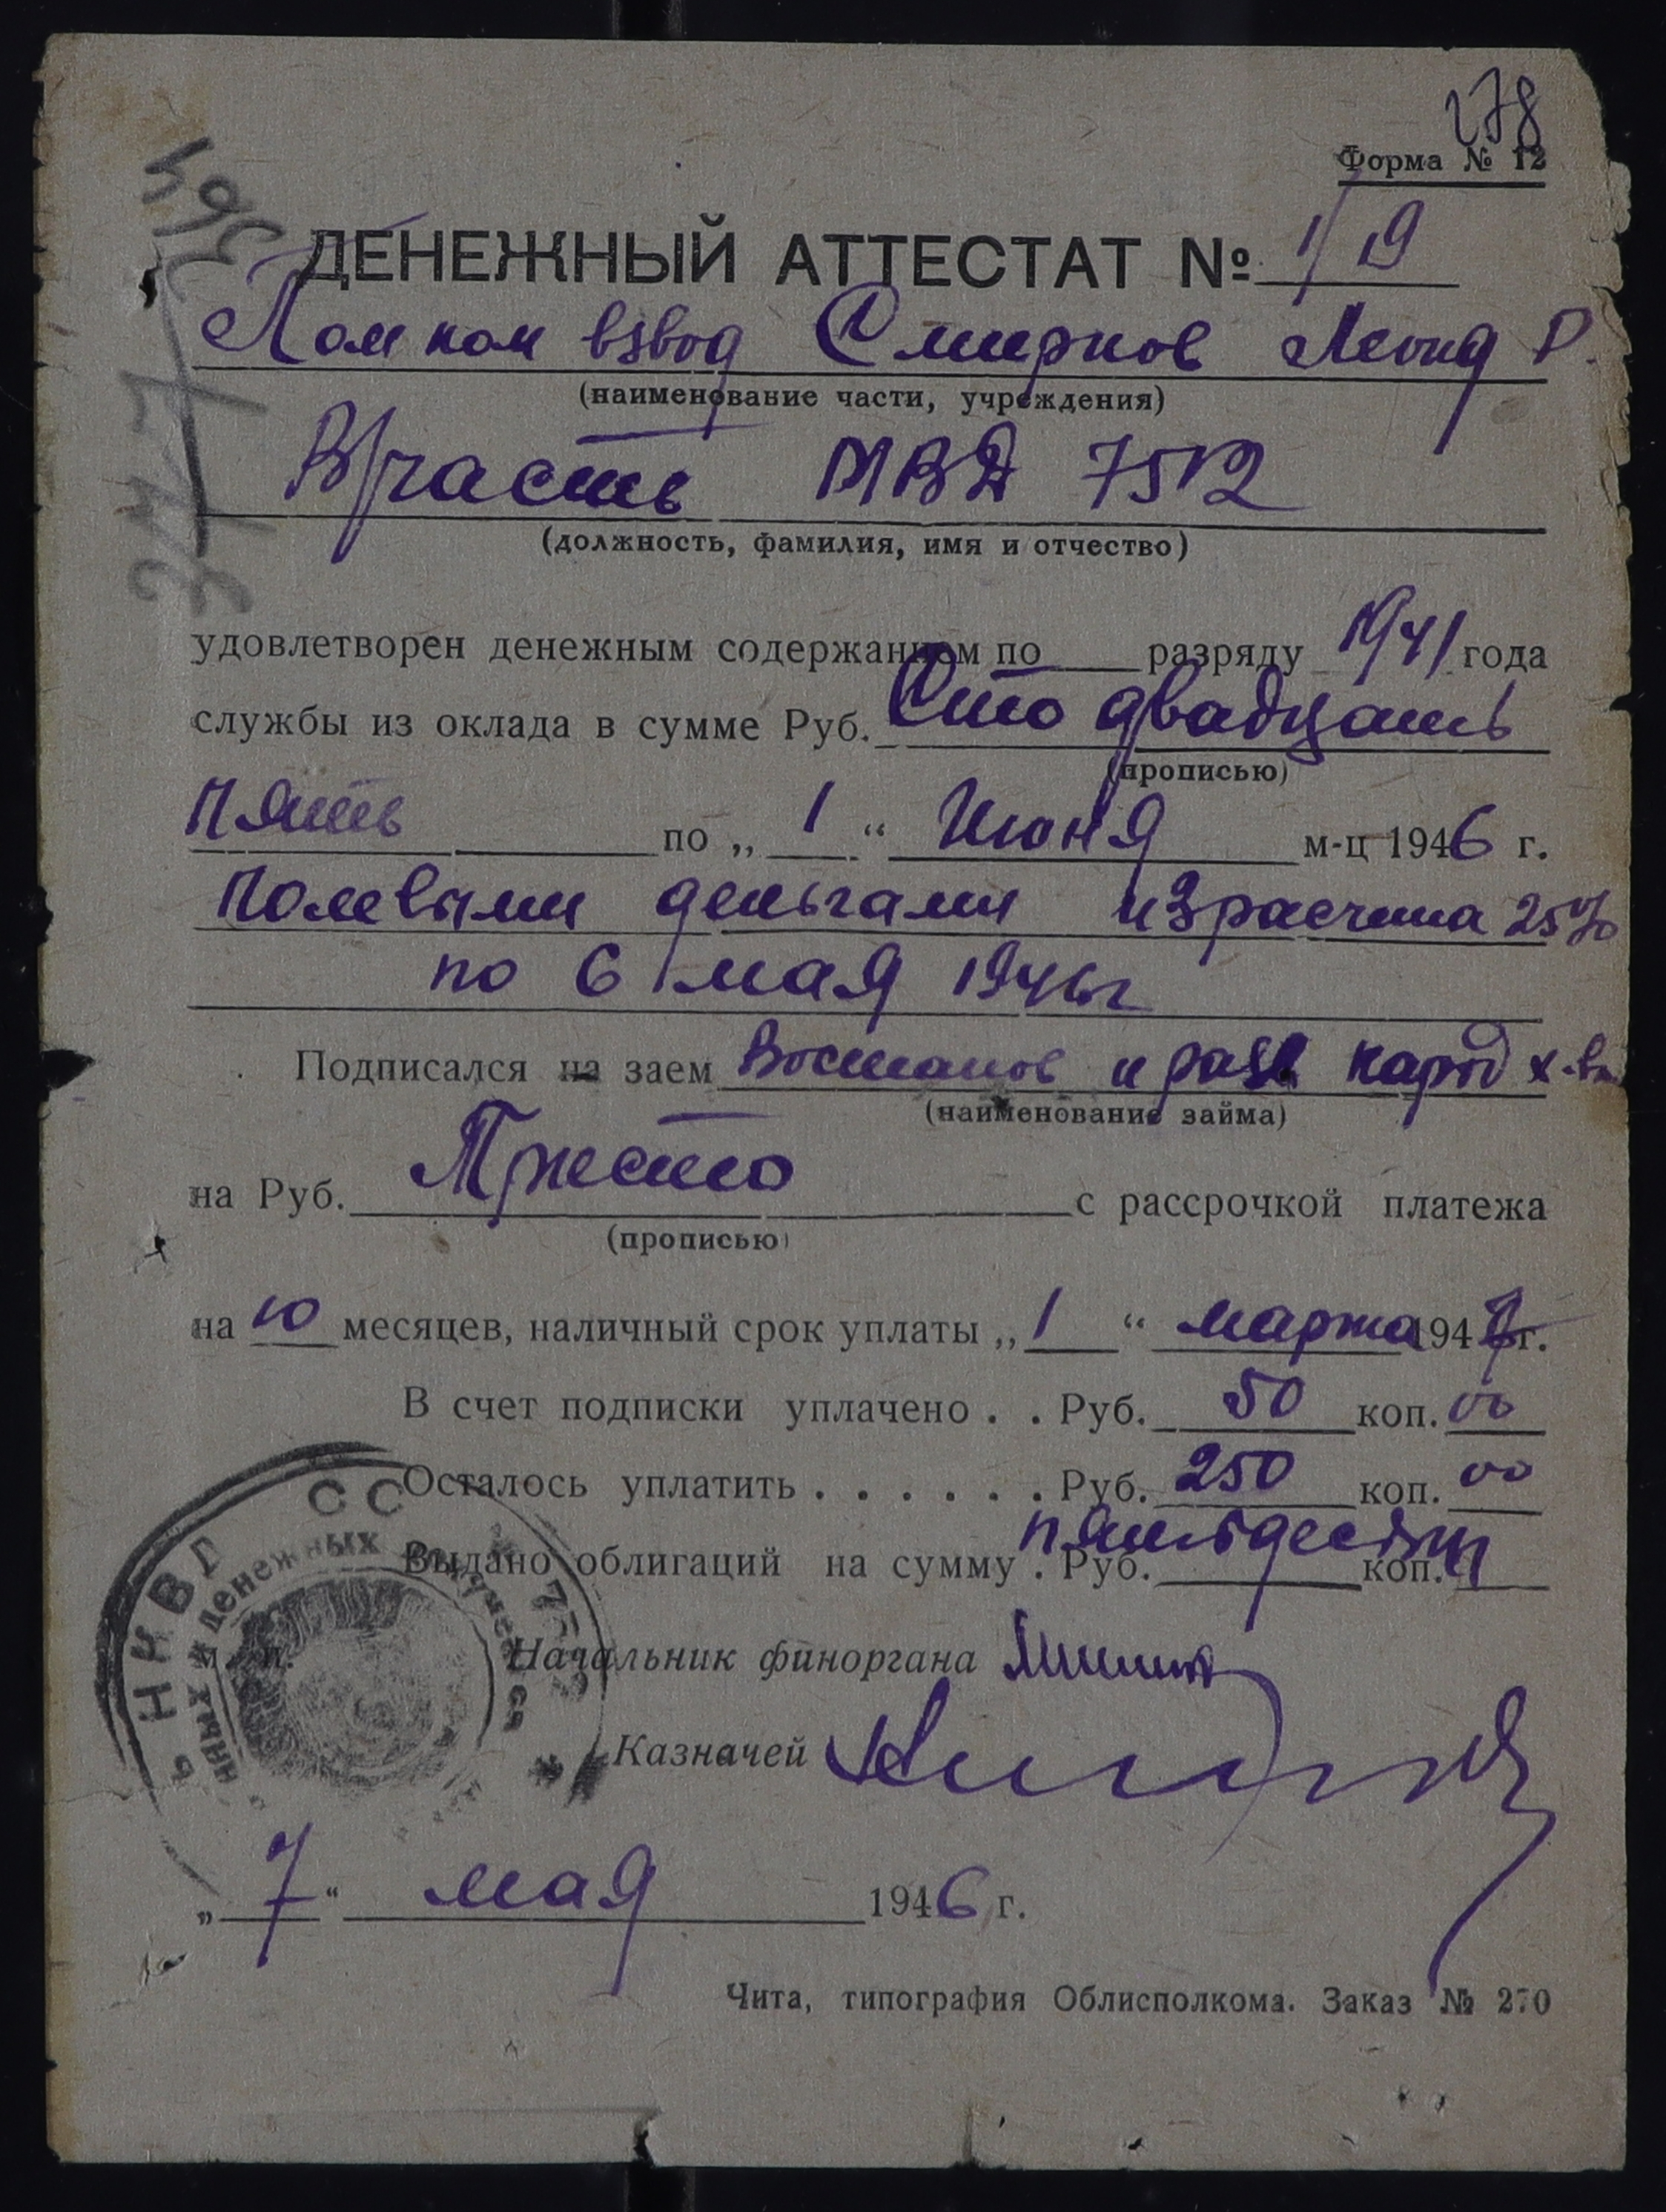 278
Форма № 12
ДЕНЕЖНЫЙ АТТЕСТАТ № 1/19
Пом ком взвод Смирнов Леонид Р.
(наименование части, учреждения)
В/часть МВД 7512
(должность, фамилия, имя и отчество)
удовлетворен денежным содержанием по разряду 1941 года
службы из оклада в сумме Руб. Сто двадцать
(прописью)
пять по „ 1 “ Июня м-ц 1946 г.
полевыми деньгами из расчета 25%
по 6 мая 1946г
Подписался на заем Востанов и разв народ х-ва
(наименование займа)
на Руб. Триста с рассрочкой платежа
(прописью)
на 10 месяцев, наличный срок уплаты „ 1 “ марта 1947 г.
В счет подписки уплачено . . Руб. 50 коп. 00
Осталось уплатить . . . . . . Руб. 250 коп. 00
Выдано облигаций на сумму . Руб. пятьдесят коп.
НКВД СС
денежных
м. п.
Начальник финоргана
Казначей
„ 7 “ мая 1946 г.
Чита, типография Облисполкома. Заказ № 270